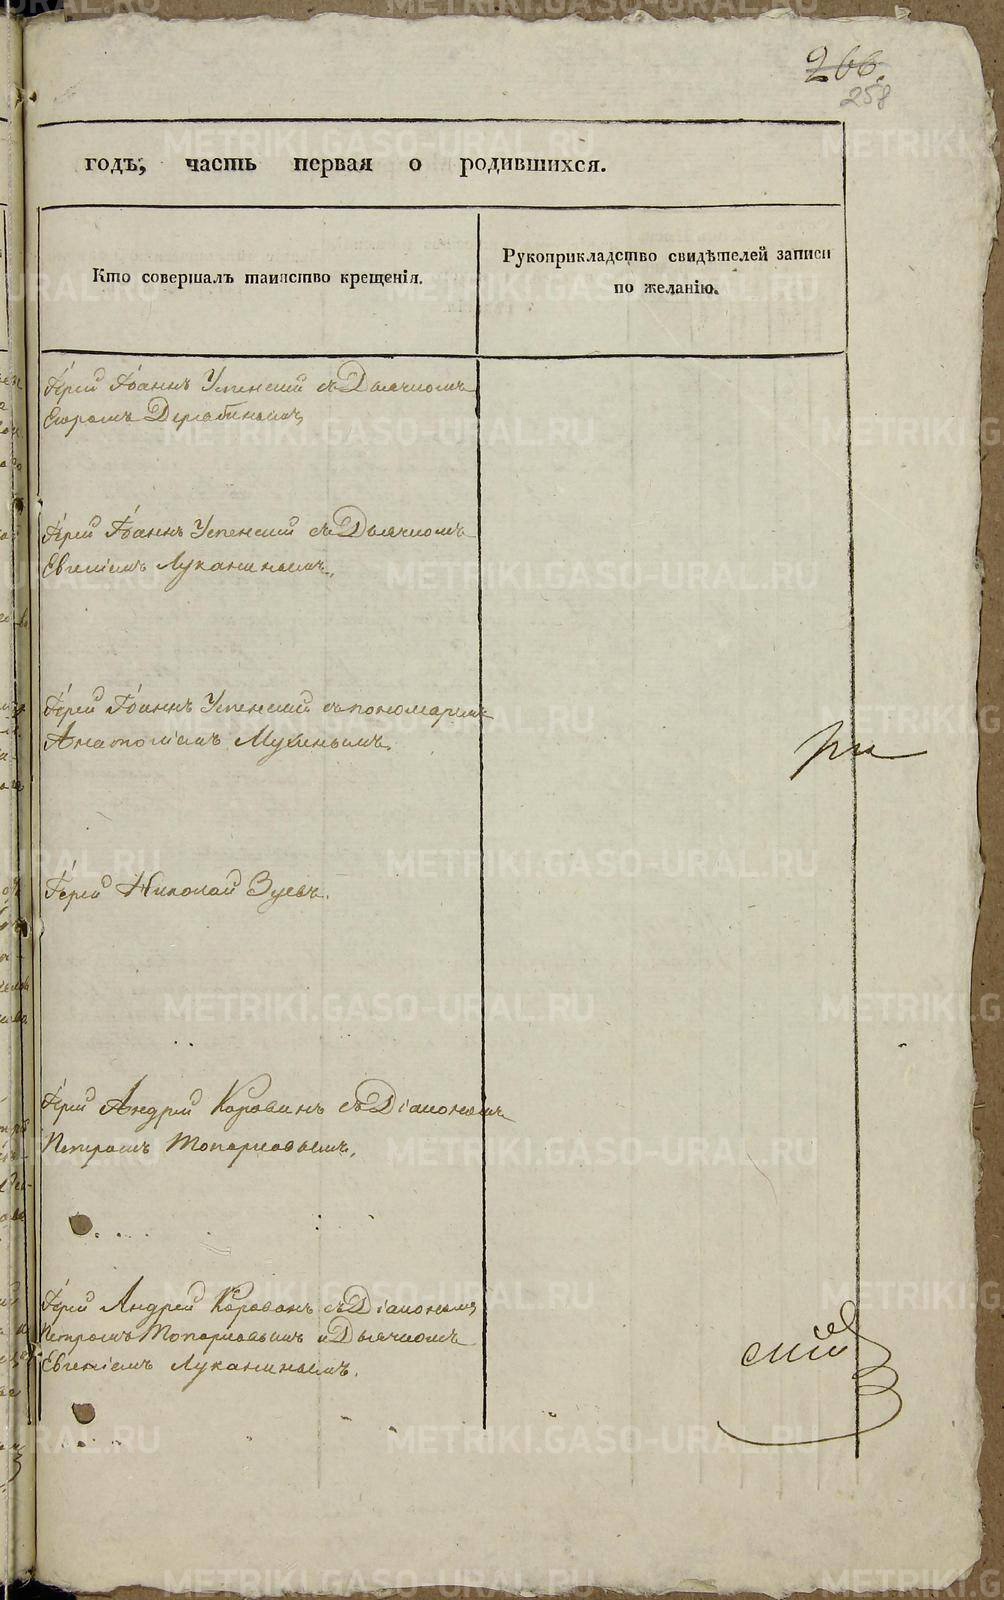 266.
258
годѣ, часть первая о родившихся.
Кто совершалъ таинство крещенія.
Рукоприкладство свидѣтелей записи
по желанію.
Іерей Іоаннъ Успенскій съ Дьячкомъ
Егоромъ Дерябинымъ
Іерей Іоаннъ Успенскій съ Дьячкомъ
Евгеніемъ Луканинымъ.
Іерей Іоаннъ Успенскій съ пономаремъ
Анатоліемъ Мухинымъ.
ри
Іерей Николай Зуевъ.
Іерей Андрей Коровинъ съ Діакономъ
Петромъ Топорковымъ.
Іерей Андрей Коровинъ съ Діакономъ
Петромъ Топорковымъ и Дьячкомъ
Евгеніемъ Луканинымъ.
скій
METRIKI.GASO-URAL.RU